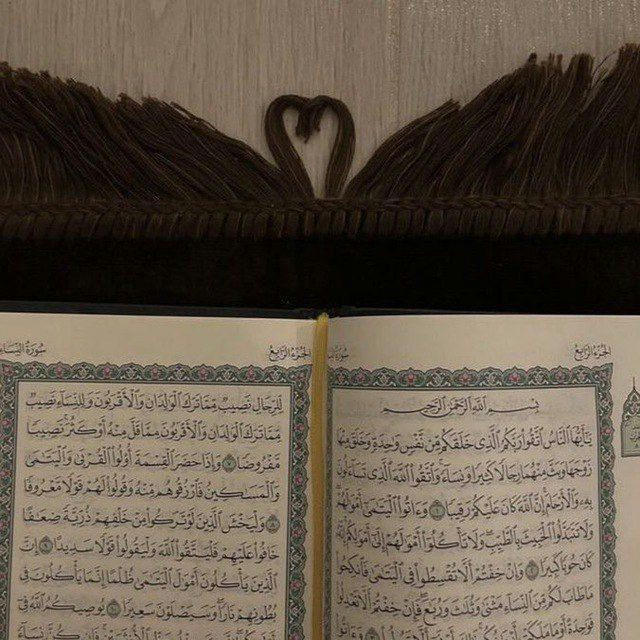 الجُزْءُ الرَّابِعُ
سُورَةُ
بِسْمِ ٱللَّهِ ٱلرَّحْمَٰنِ ٱلرَّحِيمِ
يَٰٓأَيُّهَا ٱلنَّاسُ ٱتَّقُوا۟ رَبَّكُمُ ٱلَّذِى خَلَقَكُم مِّن نَّفْسٍ وَٰحِدَةٍ وَخَلَقَ مِنْهَا
زَوْجَهَا وَبَثَّ مِنْهُمَا رِجَالًا كَثِيرًا وَنِسَآءً وَٱتَّقُوا۟ ٱللَّهَ ٱلَّذِى تَسَآءَلُونَ
بِهِۦ وَٱلْأَرْحَامَ إِنَّ ٱللَّهَ كَانَ عَلَيْكُمْ رَقِيبًا ١ وَءَاتُوا۟ ٱلْيَتَٰمَىٰٓ أَمْوَٰلَهُمْ
وَلَا تَتَبَدَّلُوا۟ ٱلْخَبِيثَ بِٱلطَّيِّبِ وَلَا تَأْكُلُوٓا۟ أَمْوَٰلَهُمْ إِلَىٰٓ أَمْوَٰلِكُمْ إِنَّهُۥ
كَانَ حُوبًا كَبِيرًا ٢ وَإِنْ خِفْتُمْ أَلَّا تُقْسِطُوا۟ فِى ٱلْيَتَٰمَىٰ فَٱنكِحُوا۟
مَا طَابَ لَكُم مِّنَ ٱلنِّسَآءِ مَثْنَىٰ وَثُلَٰثَ وَرُبَٰعَ فَإِنْ خِفْتُمْ أَلَّا تَعْدِلُوا۟
فَوَٰحِدَةً أَوْ مَا مَلَكَتْ أَيْمَٰنُكُمْ ذَٰلِكَ أَدْنَىٰٓ أَلَّا تَعُولُوا۟ ٣ وَءَاتُوا۟
الجُزْءُ الرَّابِعُ
سُورَةُ النِّسَاءِ
لِّلرِّجَالِ نَصِيبٌ مِّمَّا تَرَكَ ٱلْوَٰلِدَانِ وَٱلْأَقْرَبُونَ وَلِلنِّسَآءِ نَصِيبٌ
مِّمَّا تَرَكَ ٱلْوَٰلِدَانِ وَٱلْأَقْرَبُونَ مِمَّا قَلَّ مِنْهُ أَوْ كَثُرَ نَصِيبًا
مَّفْرُوضًا ٧ وَإِذَا حَضَرَ ٱلْقِسْمَةَ أُو۟لُوا۟ ٱلْقُرْبَىٰ وَٱلْيَتَٰمَىٰ
وَٱلْمَسَٰكِينُ فَٱرْزُقُوهُم مِّنْهُ وَقُولُوا۟ لَهُمْ قَوْلًا مَّعْرُوفًا
٨ وَلْيَخْشَ ٱلَّذِينَ لَوْ تَرَكُوا۟ مِنْ خَلْفِهِمْ ذُرِّيَّةً ضِعَٰفًا
خَافُوا۟ عَلَيْهِمْ فَلْيَتَّقُوا۟ ٱللَّهَ وَلْيَقُولُوا۟ قَوْلًا سَدِيدًا ٩ إِنَّ
ٱلَّذِينَ يَأْكُلُونَ أَمْوَٰلَ ٱلْيَتَٰمَىٰ ظُلْمًا إِنَّمَا يَأْكُلُونَ فِى
بُطُونِهِمْ نَارًا وَسَيَصْلَوْنَ سَعِيرًا ١٠ يُوصِيكُمُ ٱللَّهُ فِىٓ